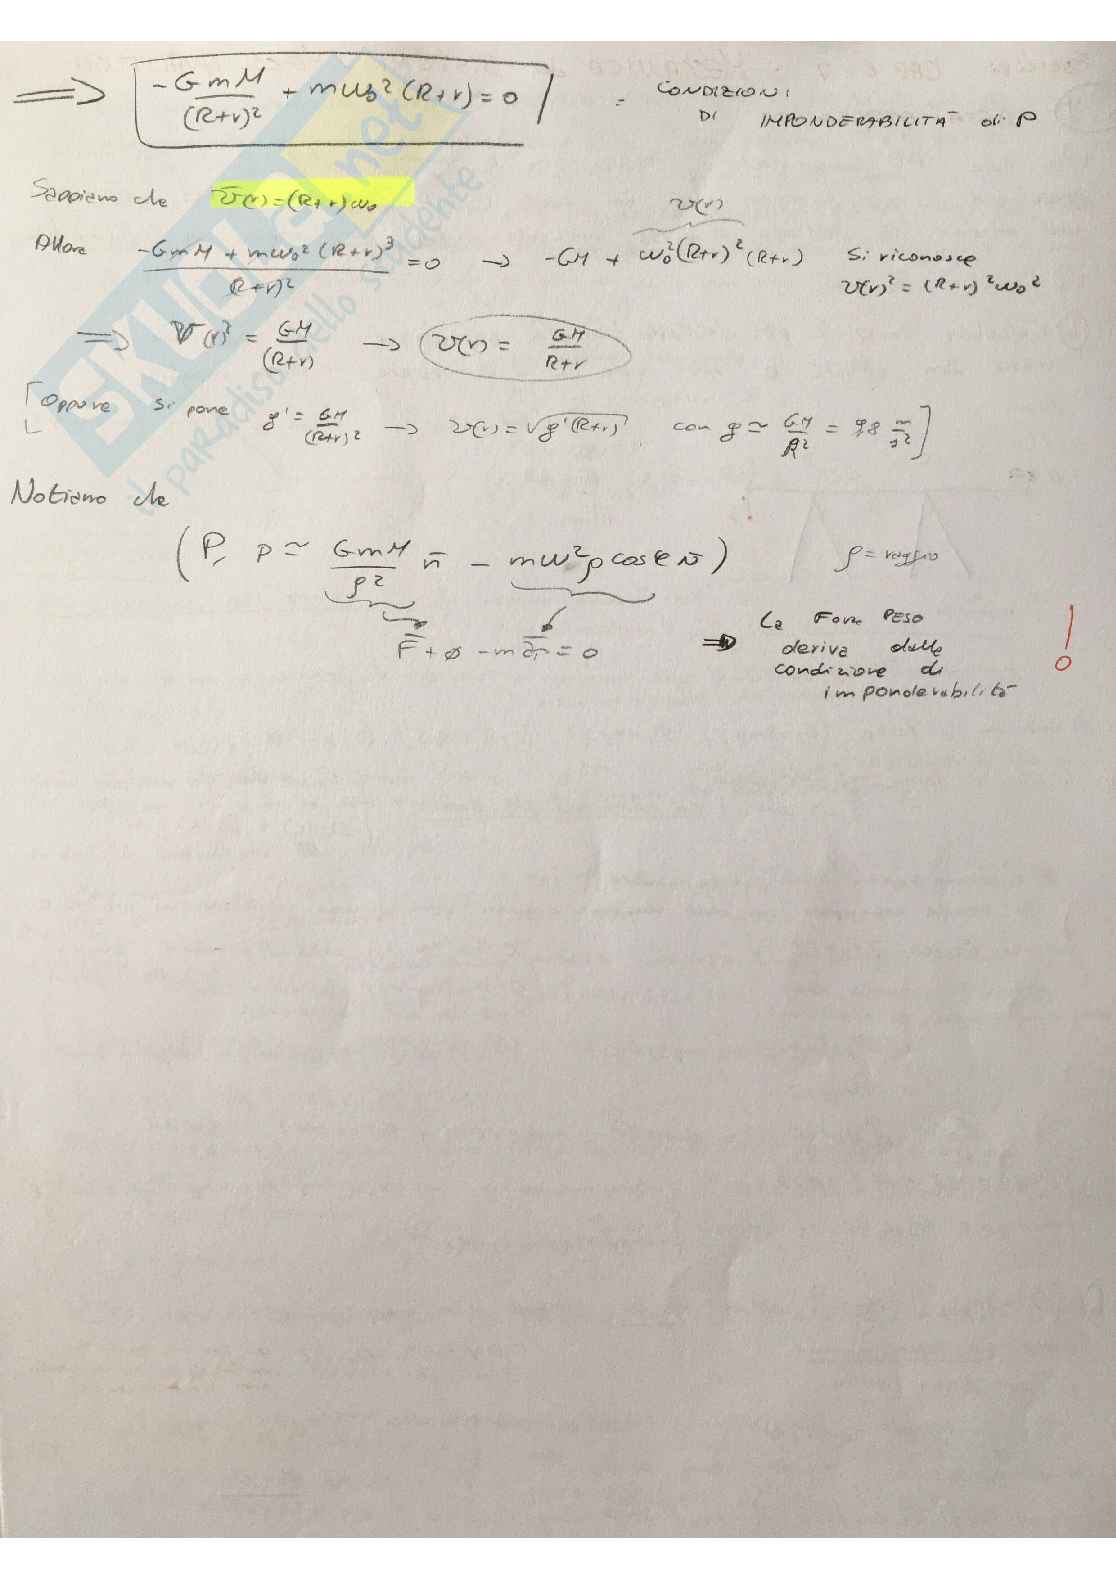 ⟹ -GmM/(R+r)² + mω₀²(R+r) = 0 = CONDIZIONI
DI IMPONDERABILITÀ di P
Sappiamo che v(r)=(R+r)ω₀
v(r)
Allora (-GmM + mω₀²(R+r)³)/(R+r)² = 0 → -GM + ω₀²(R+r)²(R+r) Si riconosce
v(r)² = (R+r)²ω₀²
⟹ v(r)² = GM/(R+r) → v(r) = GM/R+r
[Oppure si pone g' = GM/(R+r)² → v(r) = √g'(R+r) con g ≃ GM/R² = 9,8 m/s²]
Notiamo che
(P, p ≃ GmM/ρ² n̄ - mω²ρcosφ N̄) ρ = raggio
F̄ + ø - māτ = 0
⟹ La Forza PESO
deriva dalla
condizione di
imponderabilità !
SKUOLA.net
il paradiso dello studente